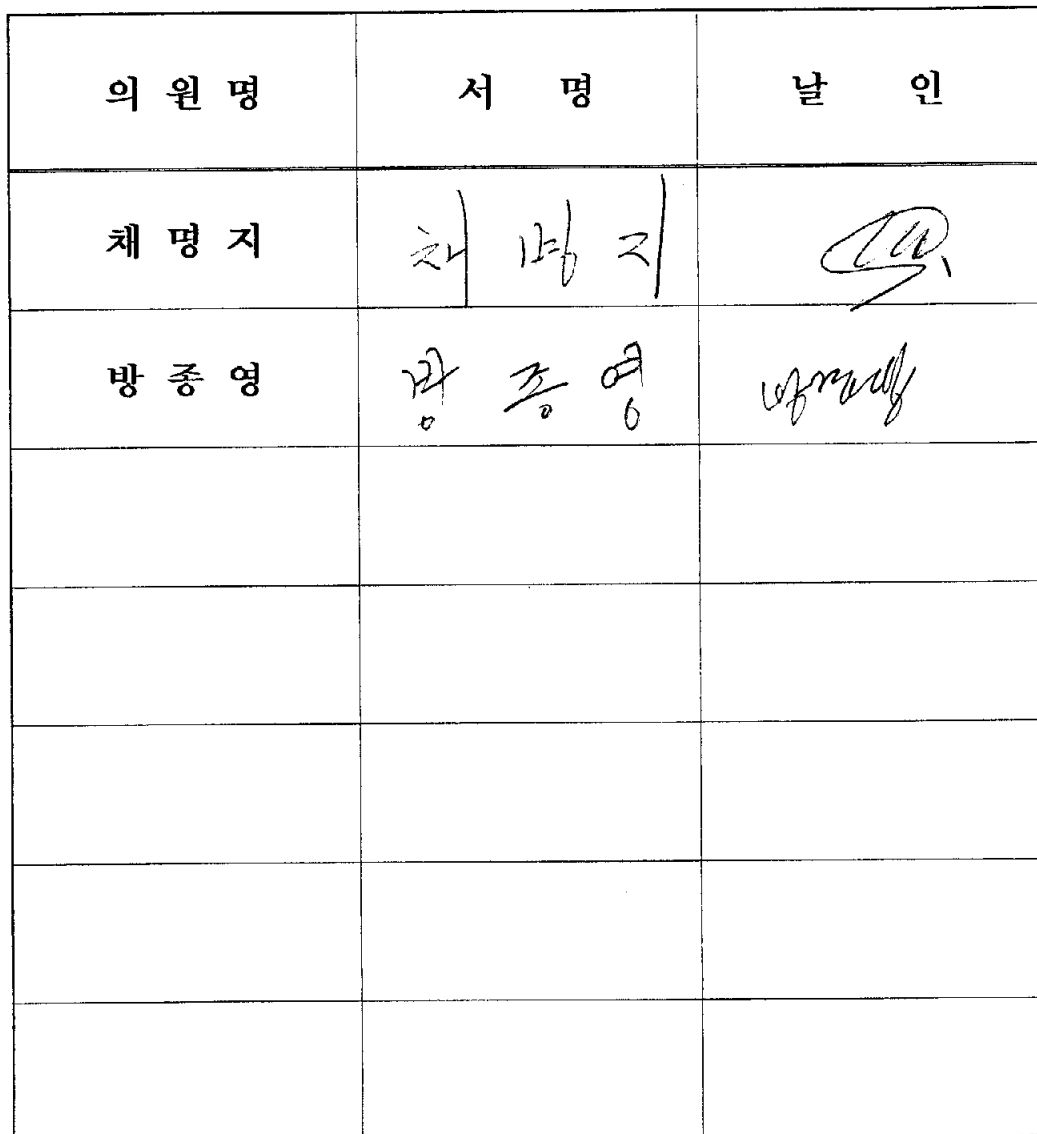 의원명 서명 날인
채명지 채명지
방종영 방종영